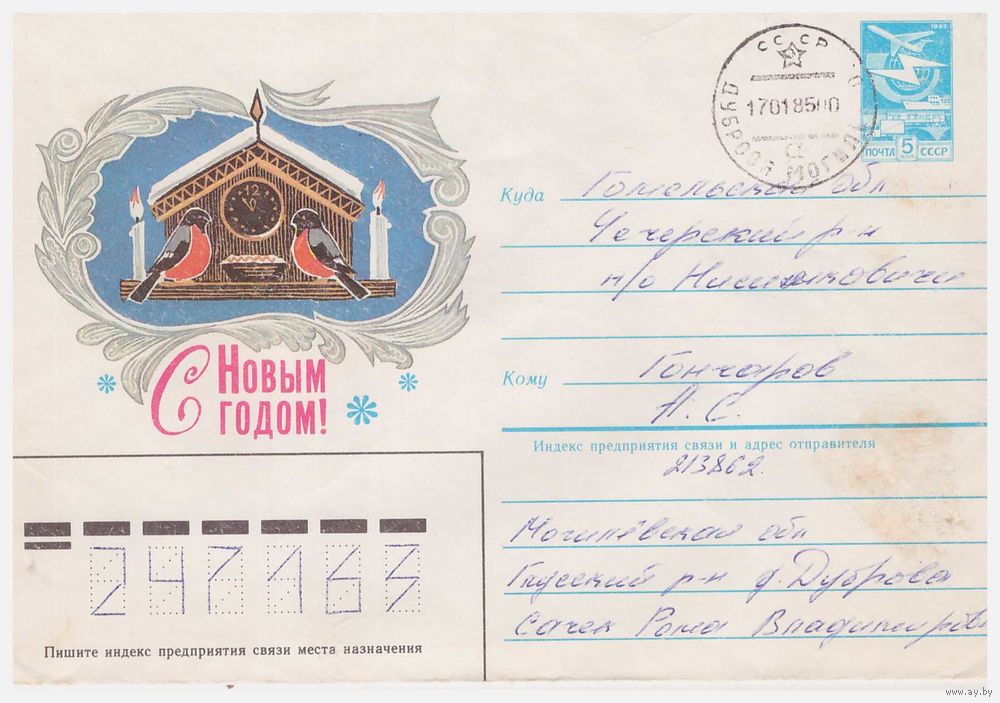 СССР
17018500
ДУБРОВА МОГИЛ
1982
ПОЧТА 5 СССР
12
С Новым
годом!
Куда Гомельская обл
Чечерский р-н
п/о
Кому Гончаров
А. С.
Индекс предприятия связи и адрес отправителя
213862.
Могилёвская обл
Глусский р-н д. Дуброва
Сачек Рома Владимиров
247163
Пишите индекс предприятия связи места назначения
www.ay.by